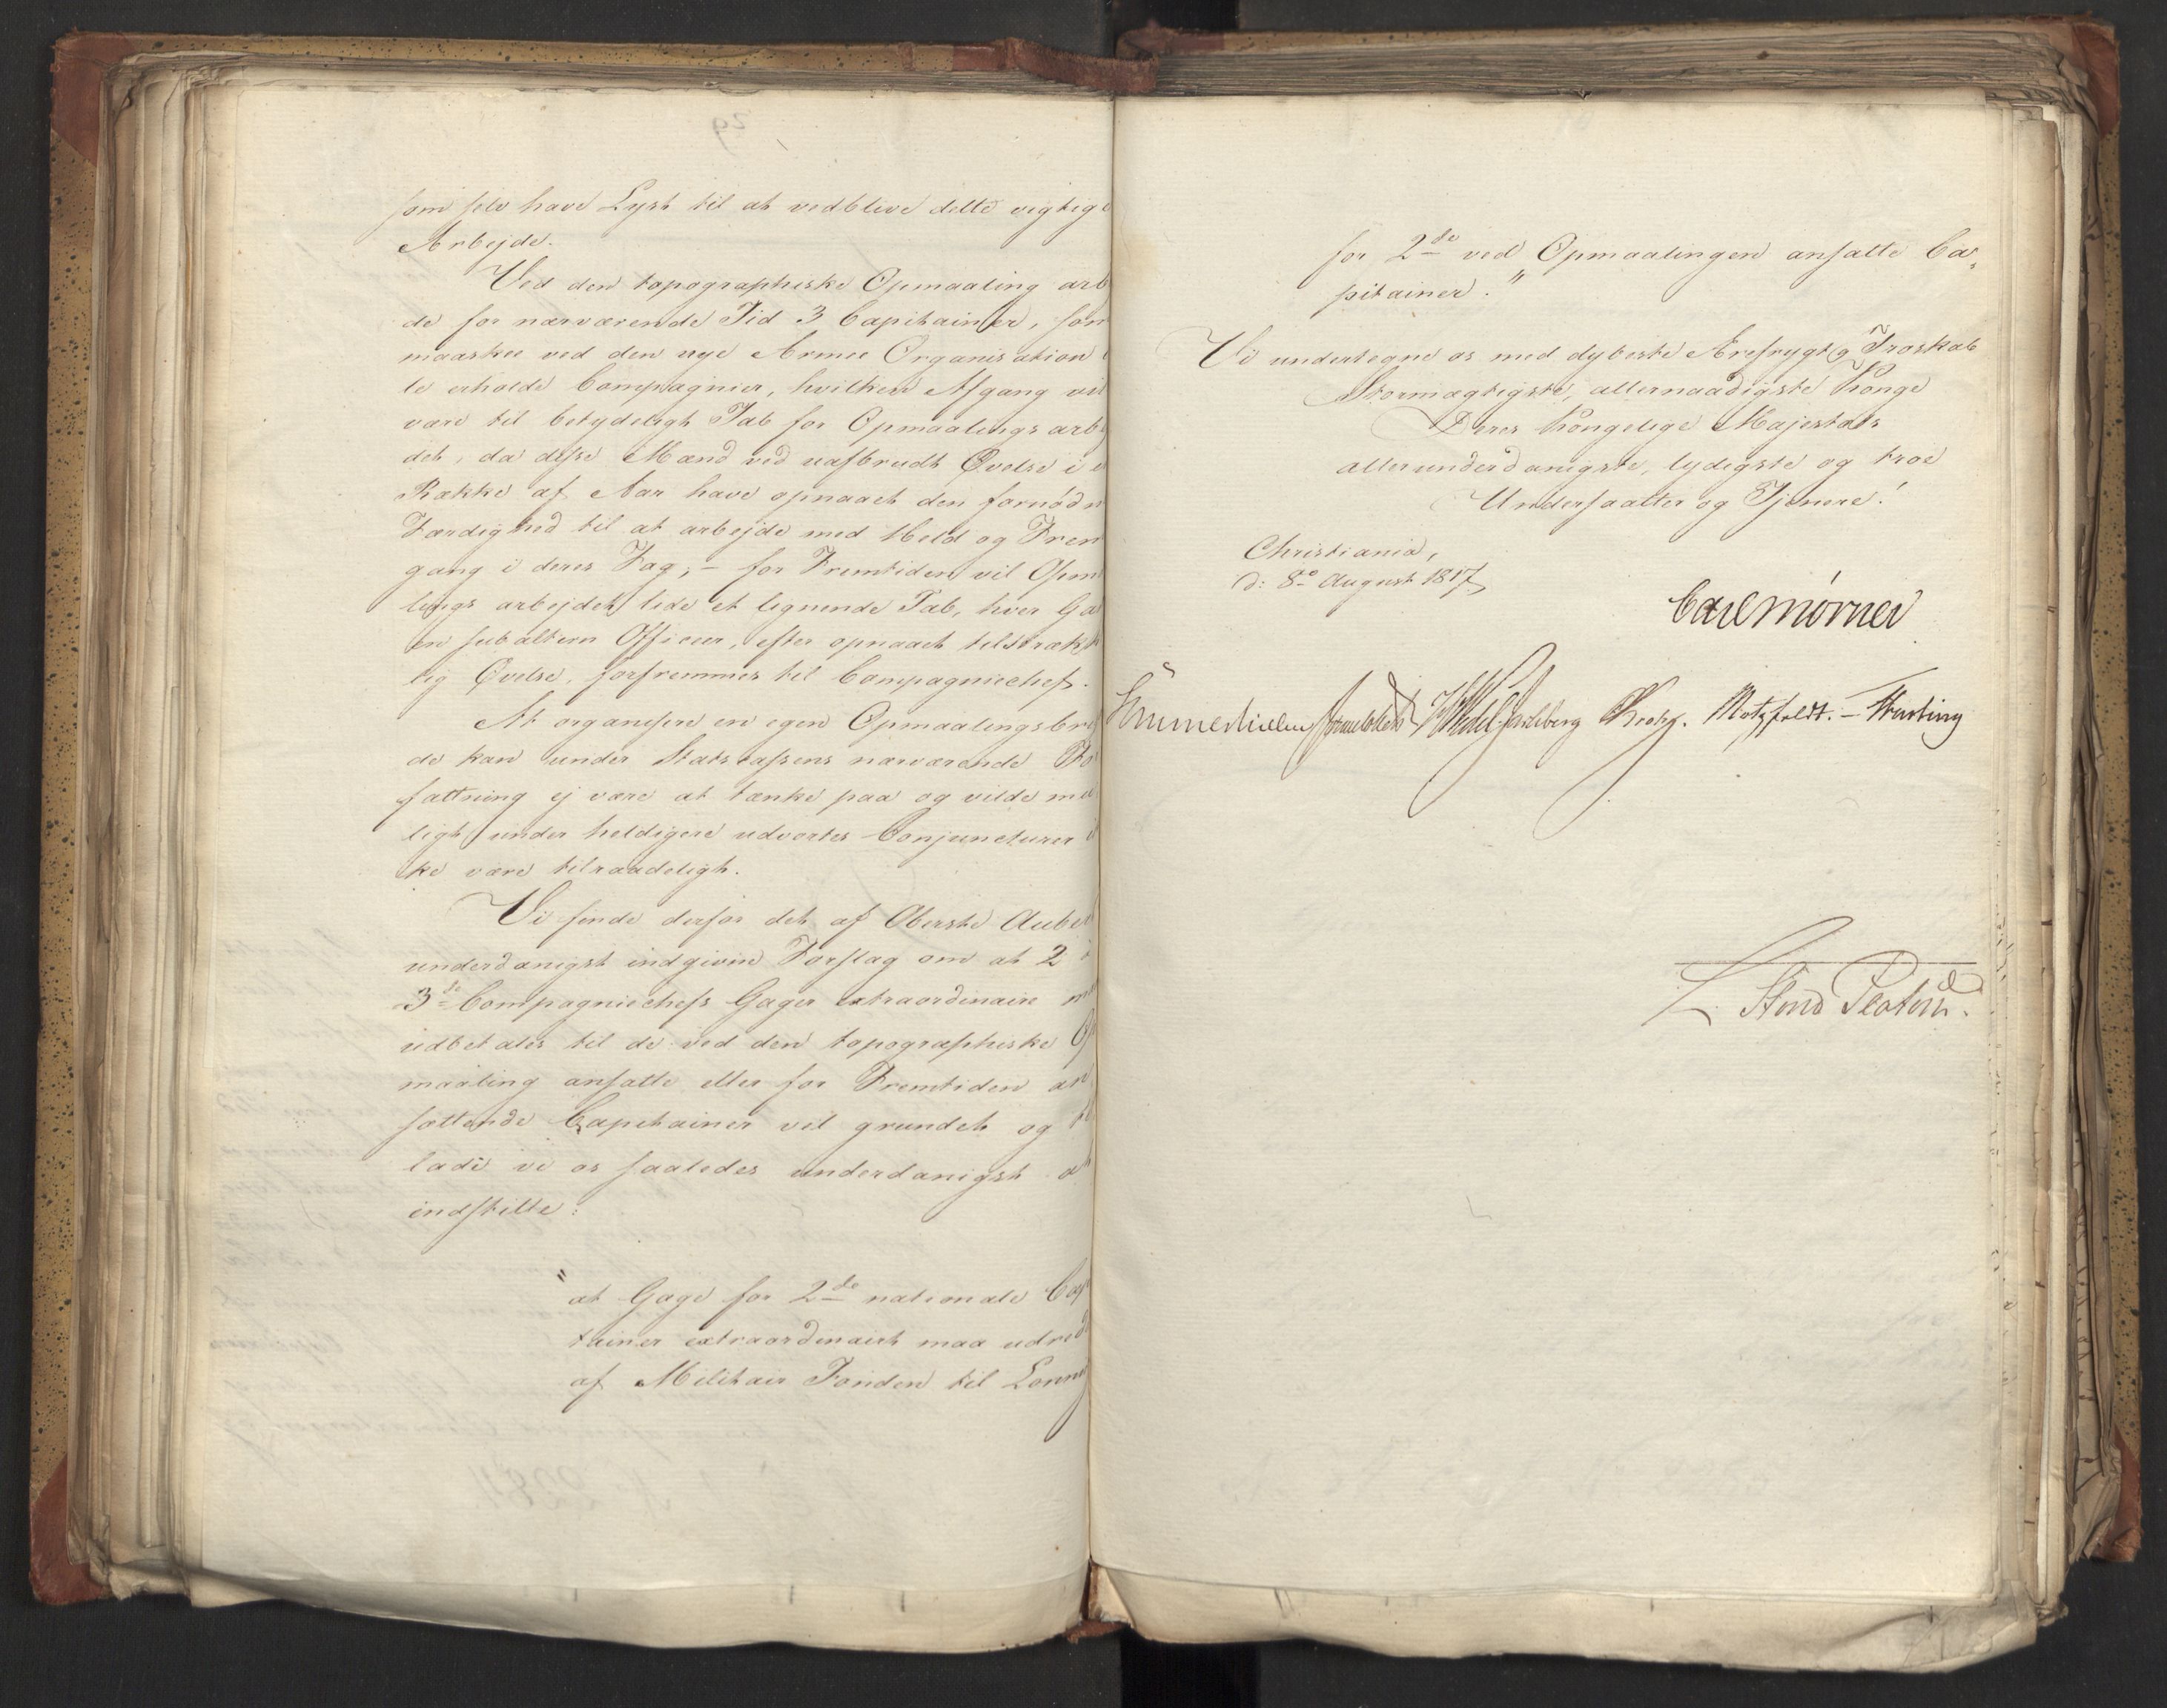 som selv have Lyst til at vedblive dette vigtige
Arbejde.
Ved den topographiske Opmaaling arb
de for nærværende Tid 3 Capitainer, som
maaskee ved den nye Armee Organisation
le erholde Compagnier, hvilken Afgang vil
være til betydeligt Tab for Opmaalings arb
det, da disse Mænd ved uafbrudt Øvelse i e
Række af Aar have opnaaet den fornødn
Færdighed til at arbejde med Held og Frem
gang i deres Fag; – for Fremtiden vil Opm
lings arbejdet lide et lignende Tab, hver Ga
en subaltern Officier, efter opnaaet tilstræk
lig Øvelse, forfremmes til Compagniechef.
At organisere en egen Opmaalingsbri
de kan under Statskassens nærværende
fattning ej være at tænke paa og vilde mu
ligt under heldigere udvortes Conjuncturer i
ke være tilraadeligt.
Vi finde derfor det af Oberste Aubert
underdanigst indgivne Forslag om at 2 à
3de Compagniechefs Gager extraordinaire m
udbetales til de ved den topographiske Op
maaling ansatte eller for Fremtiden an
sættende Capitainer vel grundet og
lade vi os saaledes underdanigst at
indstille:
"at Gage for 2de nationale Cap
tainer extraordinairt maa udrede
af Militair Fonden til Lønni
29
for 2de ved Opmaalingen ansatte Ca,,
pitainer."
Vi undertegne os med dybeste Ærefrygt og Troskab
Stormægtigste, allernaadigste Konge
Deres Kongelige Majestæts
allerunderdanigste, lydigste og troe
Undersaatter og Tjenere!
Christiania,
d: 8de August 1817
Carl Mörner
Sommerhielm Wedel Jarlsberg Krohg. Motzfeldt. – Hersting